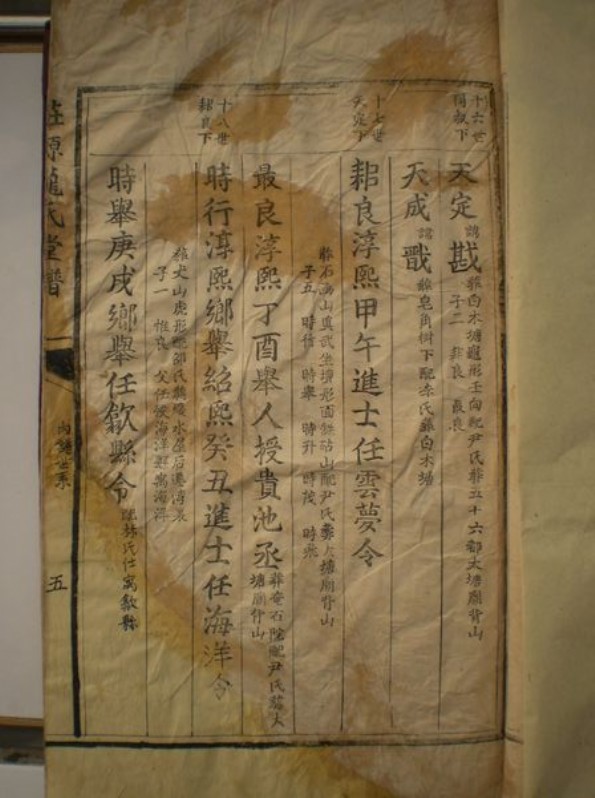 十六世
下
天定 諱戡 葬白木塘 形壬向配尹氏葬五十六都大塘廟背山
子二 耜良 最良
天成 諱戩 葬皂角樹下配李氏葬白木塘
十七世
天定下
耜良淳熙甲午進士任雲夢令
葬石 山真武坐壇形面 砧山配尹氏葬大塘廟背山
子五 時信 時舉 時升 時茂 時
最良淳熙丁酉舉人授貴池丞
葬奄石 配尹氏葬大
塘廟背山
十八世
耜良下
時行淳熙鄉舉紹熙癸丑進士任海洋令
葬犬山虎形配邵氏 水屋后
子一 惟良 父任 海洋 寓海洋
時舉庚戌鄉舉任歙縣令 配林氏仕寓歙縣
莊源龍氏堂譜
世系
五